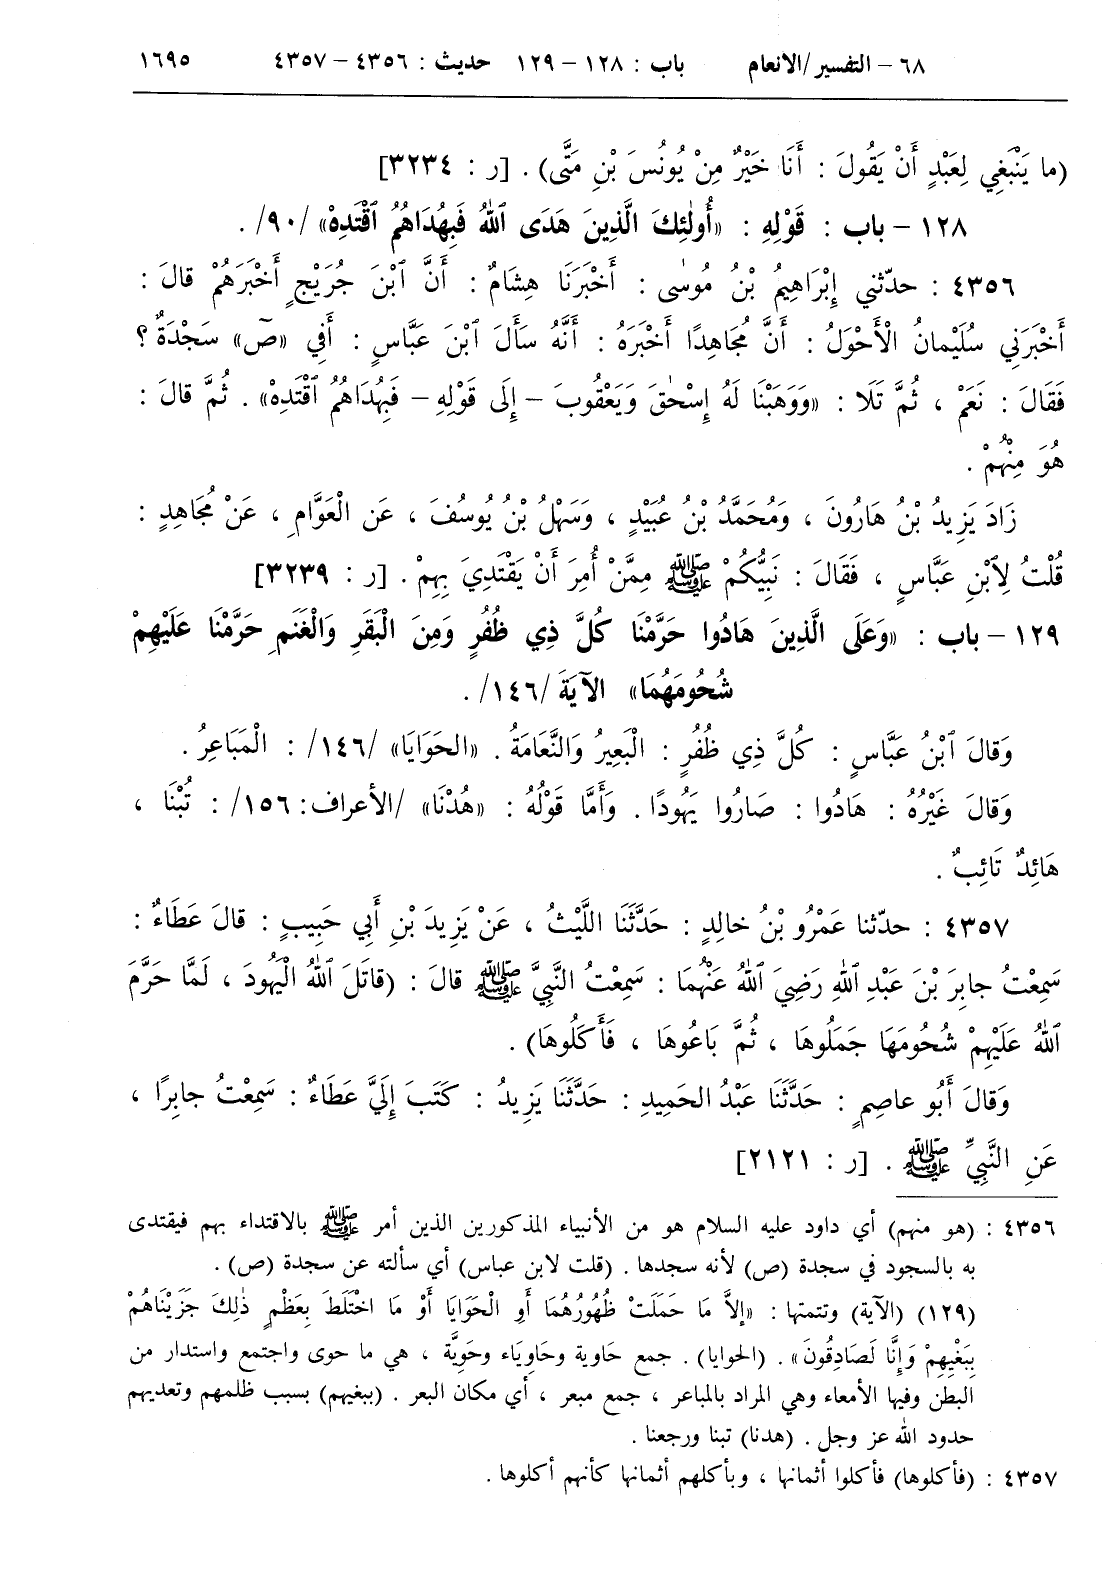 ٦٨ – التفسير/الانعام باب : ١٢٨ – ١٢٩ حديث : ٤٣٥٦ – ٤٣٥٧ ١٦٩٥
(ما يَنْبَغِي لِعَبْدٍ أَنْ يَقُولَ : أَنَا خَيْرٌ مِنْ يُونُسَ بْنِ مَتَّى) . [ر : ٣٢٣٤]
١٢٨ – باب : قَوْلِهِ : «أُولٰئِكَ الَّذِينَ هَدَى ٱللهُ فَبِهُدَاهُمُ ٱقْتَدِهْ» /٩٠/ .
٤٣٥٦ : حدّثني إِبْرَاهِيمُ بْنُ مُوسٰى : أَخْبَرَنَا هِشَامٌ : أَنَّ ٱبْنَ جُرَيْجٍ أَخْبَرَهُمْ قالَ :
أَخْبَرَنِي سُلَيْمانُ الْأَحْوَلُ : أَنَّ مُجَاهِدًا أَخْبَرَهُ : أَنَّهُ سَأَلَ ٱبْنَ عَبَّاسٍ : أَفِي «صٓ» سَجْدَةٌ ؟
فَقَالَ : نَعَمْ ، ثُمَّ تَلَا : «وَوَهَبْنَا لَهُ إِسْحٰقَ وَيَعْقُوبَ – إِلَى قَوْلِهِ – فَبِهُدَاهُمُ ٱقْتَدِهْ» . ثُمَّ قالَ :
هُوَ مِنْهُمْ .
زَادَ يَزِيدُ بْنُ هَارُونَ ، وَمُحَمَّدُ بْنُ عُبَيْدٍ ، وَسَهْلُ بْنُ يُوسُفَ ، عَنِ الْعَوَّامِ ، عَنْ مُجَاهِدٍ :
قُلْتُ لِٱبْنِ عَبَّاسٍ ، فَقَالَ : نَبِيُّكُمْ ﷺ مِمَّنْ أُمِرَ أَنْ يَقْتَدِيَ بِهِمْ . [ر : ٣٢٣٩]
١٢٩ – باب : «وَعَلَى الَّذِينَ هَادُوا حَرَّمْنَا كُلَّ ذِي ظُفُرٍ وَمِنَ الْبَقَرِ وَالْغَنَمِ حَرَّمْنَا عَلَيْهِمْ
شُحُومَهُمَا» الآيَةَ /١٤٦/ .
وَقالَ ٱبْنُ عَبَّاسٍ : كُلَّ ذِي ظُفُرٍ : الْبَعِيرُ وَالنَّعَامَةُ . «الحَوَايَا» /١٤٦/ : الْمَبَاعِرُ .
وَقالَ غَيْرُهُ : هَادُوا : صَارُوا يَهُودًا . وَأَمَّا قَوْلُهُ : «هُدْنَا» /الأعراف: ١٥٦/ : تُبْنَا ،
هَائِدٌ تَائِبٌ .
٤٣٥٧ : حدّثنا عَمْرُو بْنُ خالِدٍ : حَدَّثَنَا اللَّيْثُ ، عَنْ يَزِيدَ بْنِ أَبِي حَبِيبٍ : قالَ عَطَاءٌ :
سَمِعْتُ جابِرَ بْنَ عَبْدِ ٱللهِ رَضِيَ ٱللهُ عَنْهُمَا : سَمِعْتُ النَّبِيَّ ﷺ قالَ : (قاتَلَ ٱللهُ الْيَهُودَ ، لَمَّا حَرَّمَ
ٱللهُ عَلَيْهِمْ شُحُومَهَا جَمَلُوهَا ، ثُمَّ بَاعُوهَا ، فَأَكَلُوهَا) .
وَقالَ أَبُو عاصِمٍ : حَدَّثَنَا عَبْدُ الحَمِيدِ : حَدَّثَنَا يَزِيدُ : كَتَبَ إِلَيَّ عَطَاءٌ : سَمِعْتُ جابِرًا ،
عَنِ النَّبِيِّ ﷺ . [ر : ٢١٢١]
٤٣٥٦ : (هو منهم) أي داود عليه السلام هو من الأنبياء المذكورين الذين أمر ﷺ بالاقتداء بهم فيقتدى
به بالسجود في سجدة (ص) لأنه سجدها . (قلت لابن عباس) أي سألته عن سجدة (ص) .
(١٢٩) (الآية) وتتمتها : «إلاَّ مَا حَمَلَتْ ظُهُورُهُمَا أَوِ الْحَوَايَا أَوْ مَا اخْتَلَطَ بِعَظْمٍ ذٰلِكَ جَزَيْنَاهُمْ
بِبَغْيِهِمْ وَإِنَّا لَصَادِقُونَ» . (الحوايا) . جمع حَاوية وحَاوِيَاء وحَوِيَّة ، هي ما حوى واجتمع واستدار من
البطن وفيها الأمعاء وهي المراد بالمباعر ، جمع مبعر ، أي مكان البعر . (ببغيهم) بسبب ظلمهم وتعديهم
حدود الله عز وجل . (هدنا) تبنا ورجعنا .
٤٣٥٧ : (فأكلوها) فأكلوا أثمانها ، وبأكلهم أثمانها كأنهم أكلوها .